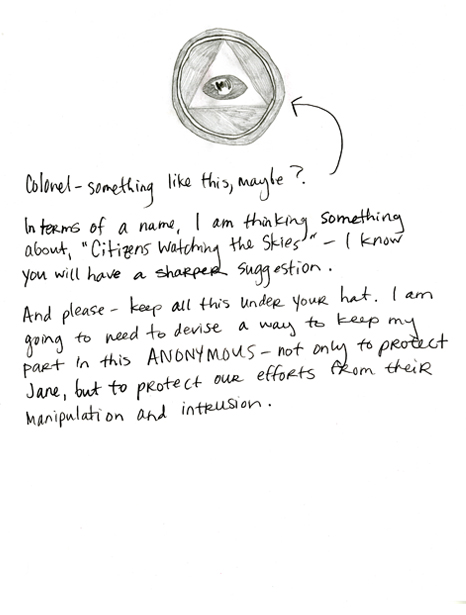 Colonel - something like this, maybe?
In terms of a name, I am thinking something
about, "Citizens Watching the Skies" - I know
you will have a sharper suggestion.
And please - keep all this under your hat. I am
going to need to devise a way to keep my
part in this ANONYMOUS - not only to protect
Jane, but to protect our efforts from their
manipulation and intrusion.